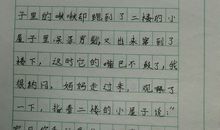 子里的啾啾却跑到了二楼的小
屋子里呆呆发愁，又出来窜到了
楼下，这时它的嘴巴不叙了，我
很纳闷，妈妈走过来，观察了
一下，指着二楼的小屋子说："